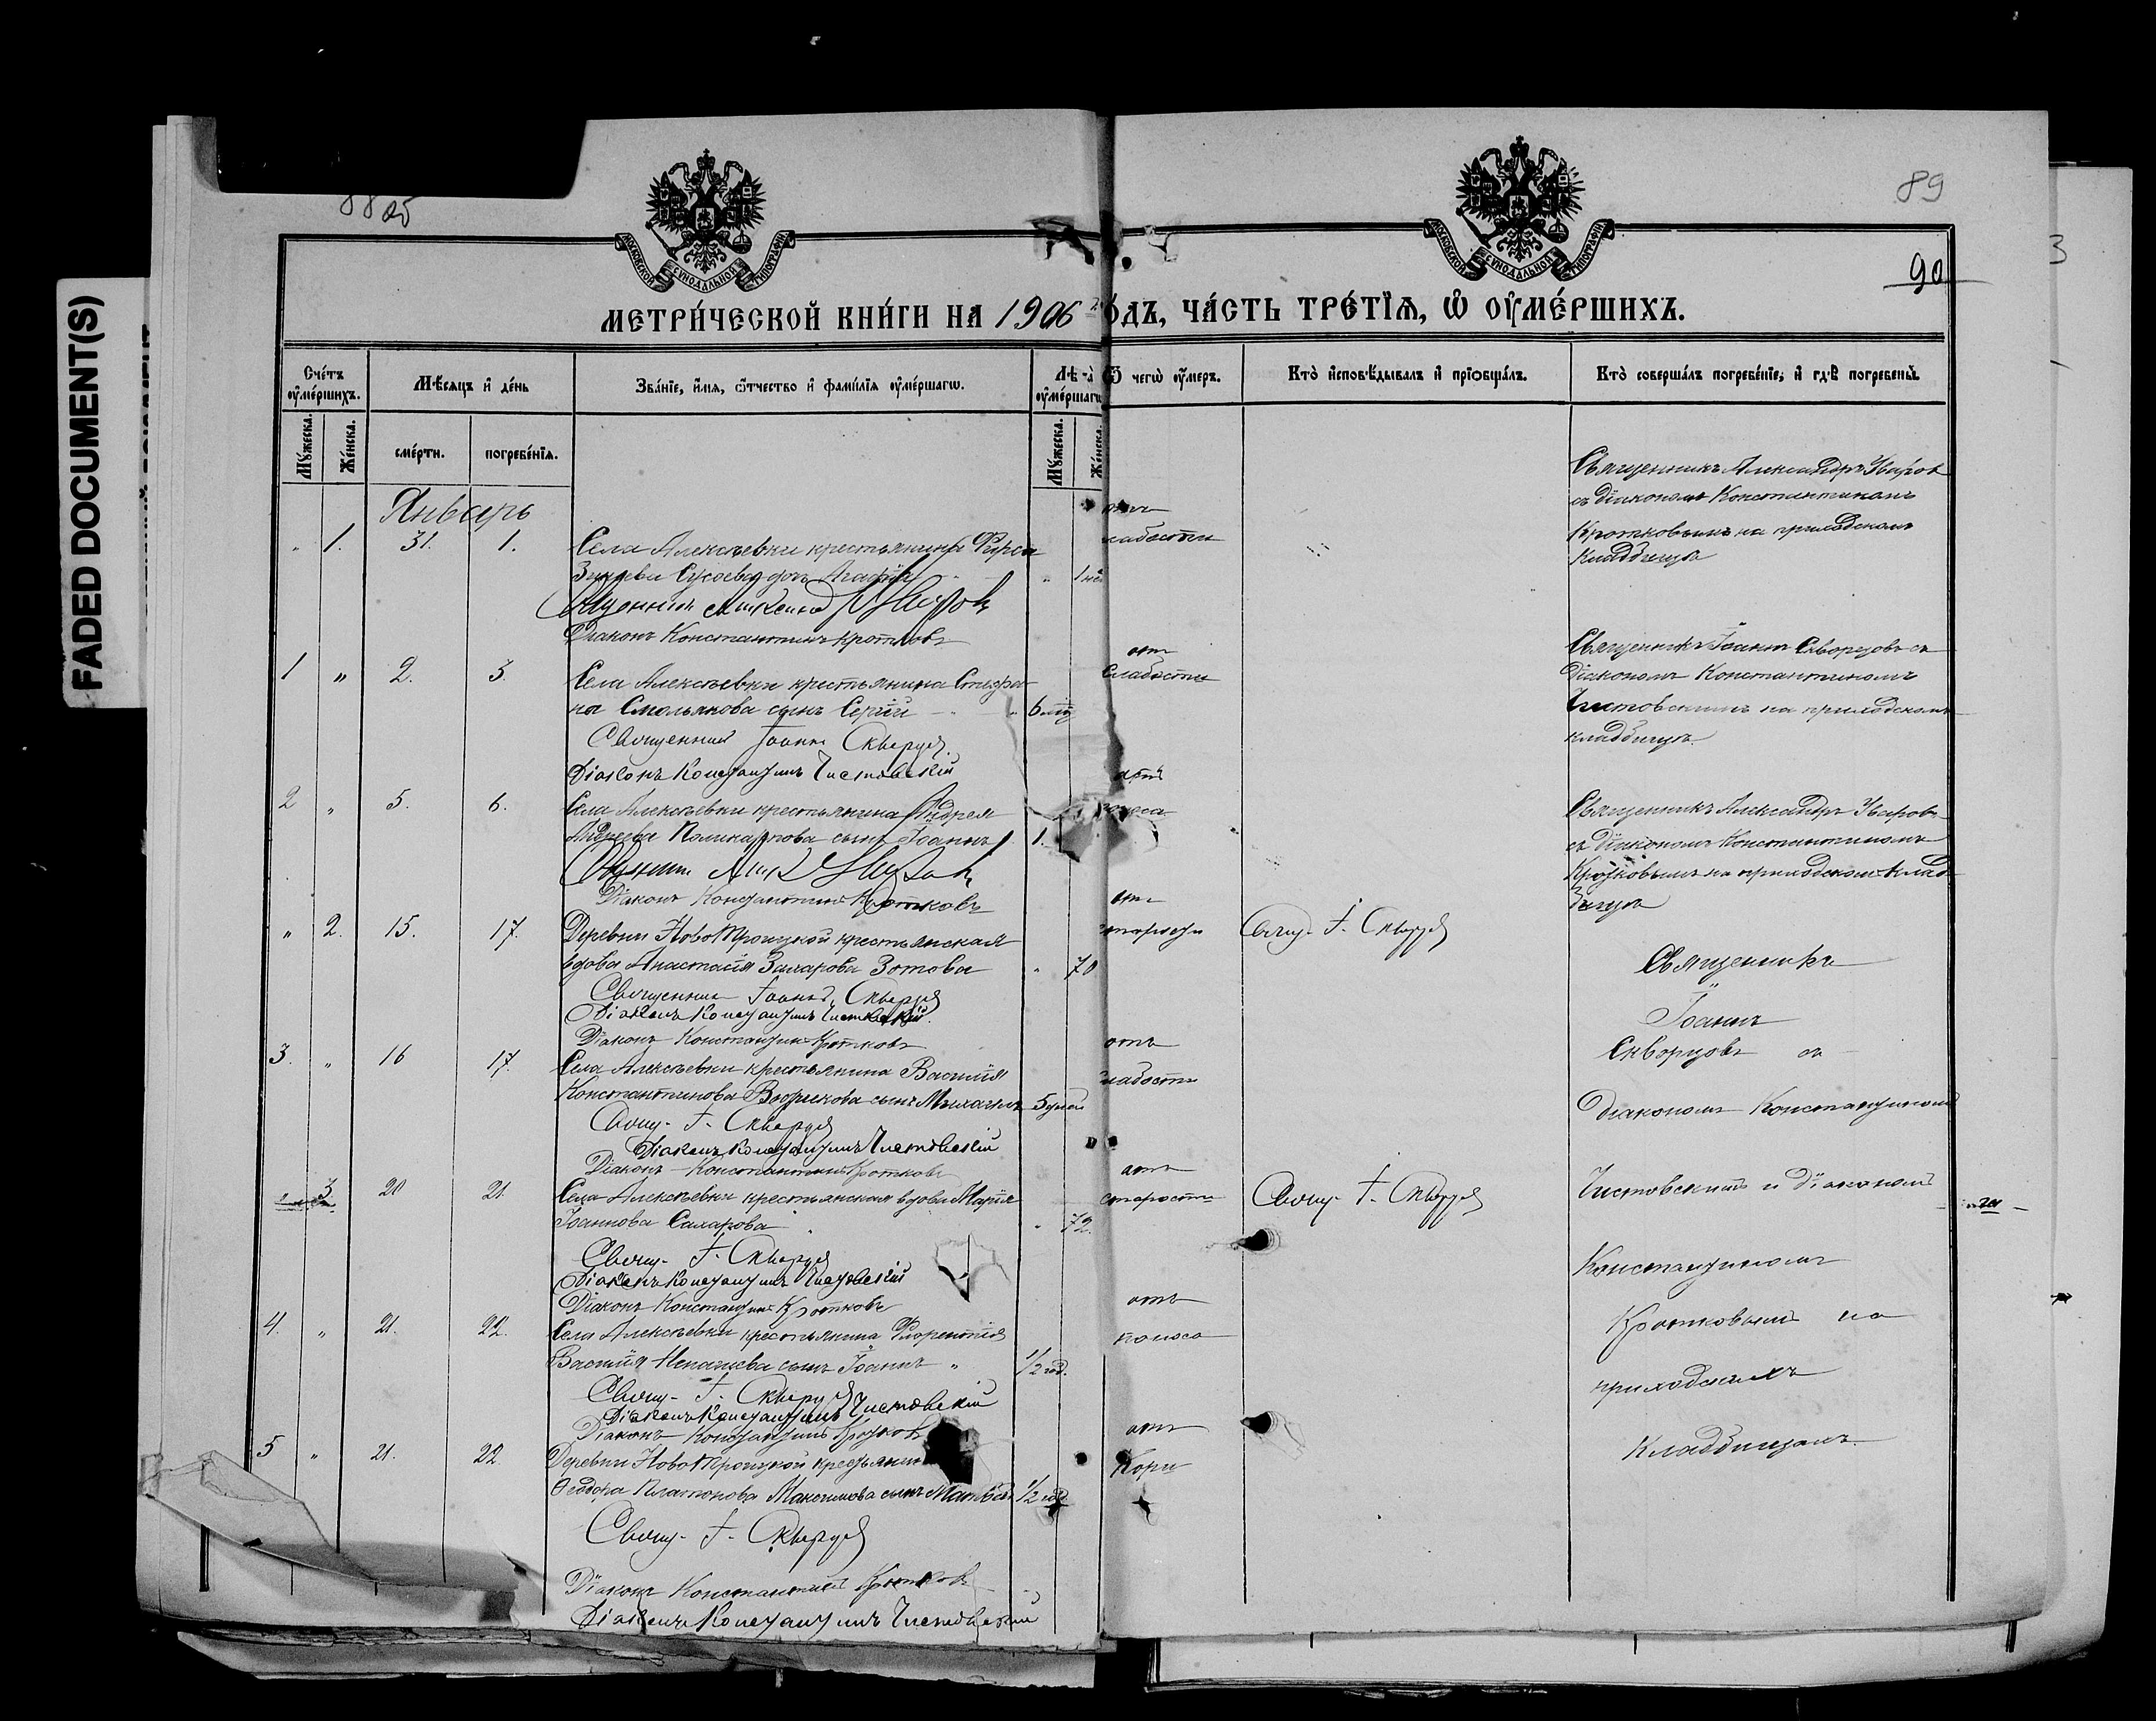 FADED DOCUMENT(S)
88 об
89
90
МОСКОВСКОЙ СУНОДАЛЬНОЙ ТИПОГРАФІИ
МОСКОВСКОЙ СУНОДАЛЬНОЙ ТИПОГРАФІИ
МЕТРИ́ЧЕСКОЙ КНИ́ГИ НА 1906 го́дъ, ЧА́СТЬ ТРЕ́ТІѦ, Ѡ ОУМЕ́РШИХЪ.
Сче́тъ оумершихъ.
Мѣсяцъ и де́нь
Зва́ніе, имя, отчество и фами́лія оуме́ршагѡ.
Лѣта оумершагѡ
Ѿ чегѡ оумеръ.
Кто̀ исповѣдывалъ и пріобща́лъ.
Кто̀ соверша́лъ погребе́ніе, и гдѣ̀ погребены̀.
Мужеска.
Женска.
сме́рти.
погребе́нія.
Мужеска.
Женска.
Январь
„ 1. 31. 1. Села Алексѣевки крестьянина Фирса
дочь Агафія „ 1 нед
Діаконъ Константинъ Кротковъ
отъ
слабости
Священникъ Александръ Уваровъ
съ діакономъ Константиномъ
Кротковымъ на приходскомъ
кладбищѣ
1 „ 2. 3. Села Алексѣевки крестьянина Стефа-
на Смольякова сынъ Сергій 6 мѣс
Священникъ Іоаннъ Скворцовъ.
Діаконъ Константинъ Чистовскій
отъ
слабости
Священникъ Іоаннъ Скворцовъ съ
діакономъ Константиномъ
Чистовскимъ на приходскомъ
кладбищѣ.
2 „ 5. 6. Села Алексѣевки крестьянина Андрея
Андреева Поликарпова сынъ Іоаннъ 1.
Діаконъ Константинъ Кротковъ
отъ
поноса
Священникъ Александръ Уваровъ
съ діакономъ Константиномъ
Кротковымъ на приходскомъ клад-
бищѣ
„ 2. 15. 17. Деревни НовоТроицкой крестьянская
вдова Анастасія Захарова Зотова „ 70
Священникъ Іоаннъ Скворцовъ
Діаконъ Константинъ Чистовскій.
Діаконъ Константинъ Кротковъ
отъ
старости
Свящ. І. Скворцовъ
Священникъ
Іоаннъ
Скворцовъ съ
діакономъ Константиномъ
Чистовскимъ и діакономъ
Константиномъ
Кротковымъ на
приходскихъ
кладбищахъ.
3. „ 16 17. Села Алексѣевки крестьянина Василія
Константинова сынъ Михаилъ 5 дней
Свящ. І. Скворцовъ
Діаконъ Константинъ Чистовскій
Діаконъ Константинъ Кротковъ
отъ
слабости
3 20 21. Села Алексѣевки крестьянская вдова Марія
Іоаннова Сахарова „ 72.
Свящ. І. Скворцовъ
Діаконъ Константинъ Чистовскій
Діаконъ Константинъ Кротковъ
отъ
старости
Свящ. І. Скворцовъ
4. „ 21. 22. Села Алексѣевки крестьянина Флорентія
сынъ Іоаннъ „ 1/2 год.
Свящ. І. Скворцовъ
Діаконъ Константинъ Чистовскій
Діаконъ Константинъ Кротковъ
отъ
поноса
5 „ 21. 22 Деревни НовоТроицкой крестьянина
Ѳеодора Платонова Максимова сынъ Матвѣй 1/2 год
Свящ. І. Скворцовъ
Діаконъ Константинъ Кротковъ
Діаконъ Константинъ Чистовскій
отъ
Кори